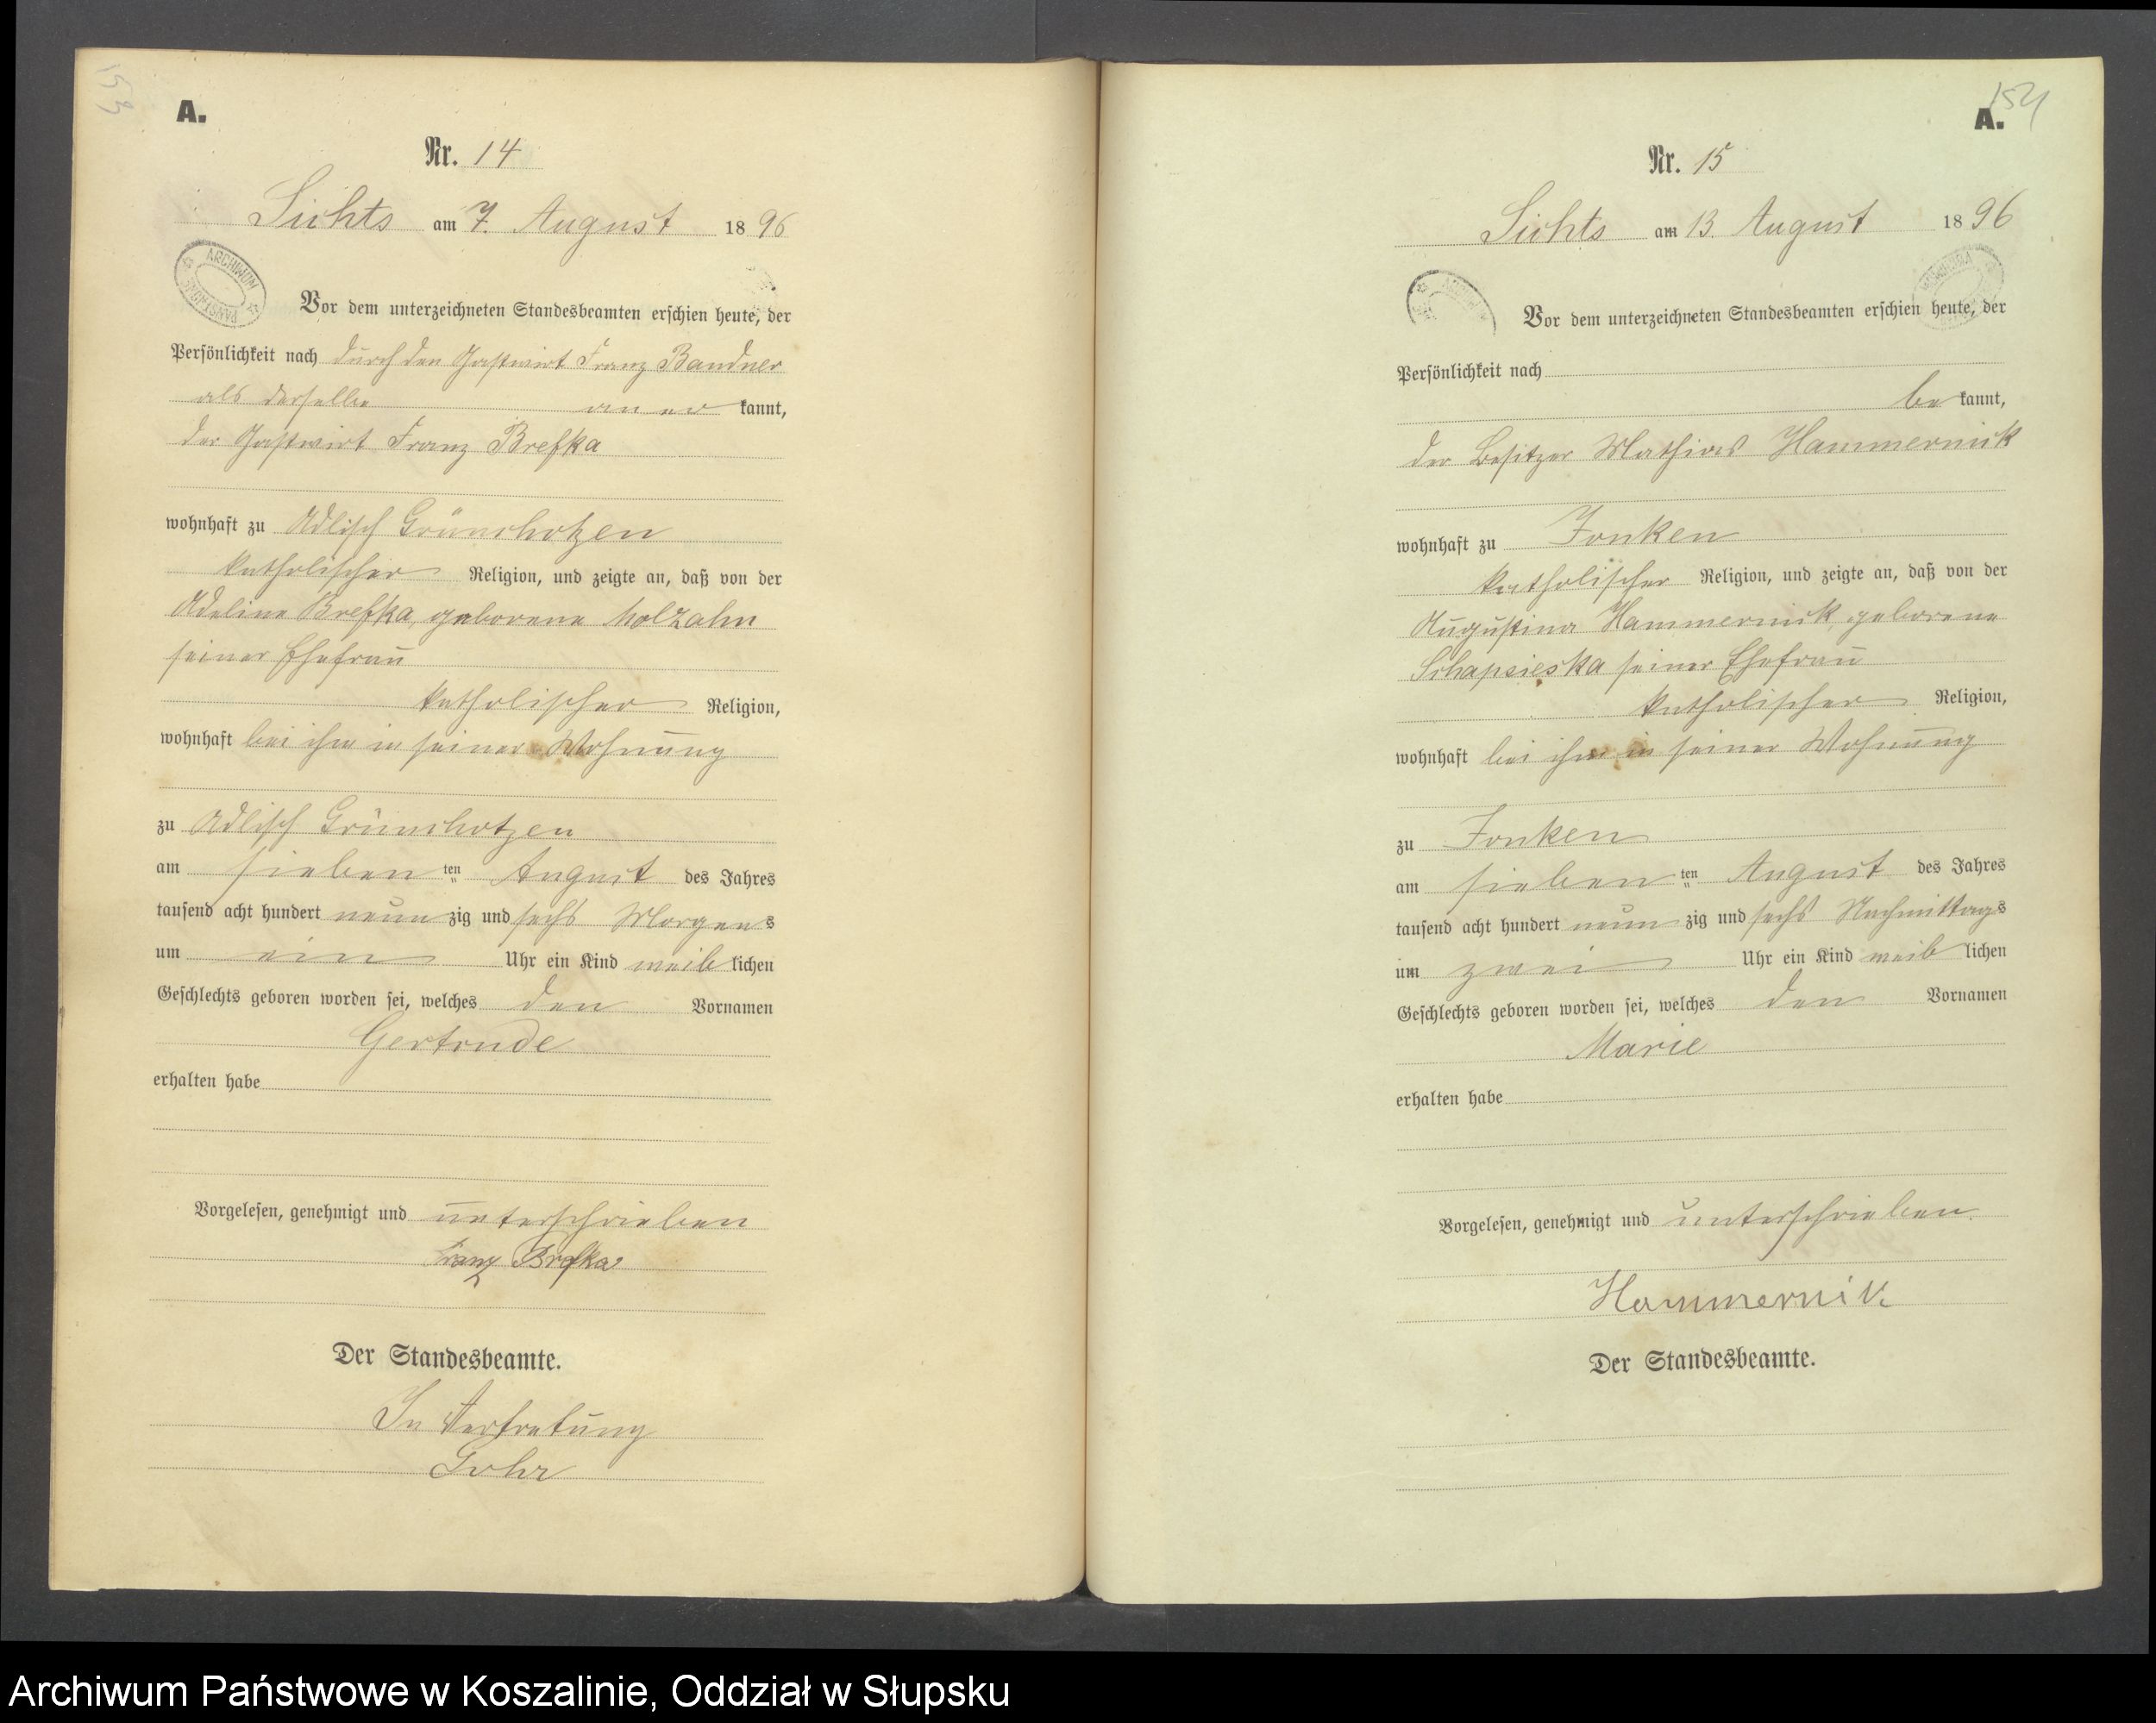 153
A.
Nr. 14
Lichts am 7. August 1896
ARCHIWUM PAŃSTWOWE
Vor dem unterzeichneten Standesbeamten erschien heute, der
Persönlichkeit nach durch den Gastwirt Franz Bandner
als derselbe an er kannt,
der Gastwirt Franz Brefka
wohnhaft zu Adlisch Grünchotzen
katholischer Religion, und zeigte an, daß von der
Adeline Brefka, geborene Molzahn
seiner Ehefrau
katholischer Religion,
wohnhaft bei ihm in seiner Wohnung
zu Adlisch Grünchotzen
am sieben ten August des Jahres
tausend acht hundert neun zig und sechs Morgens
um ein Uhr ein Kind weib lichen
Geschlechts geboren worden sei, welches den Vornamen
Gertrude
erhalten habe
Vorgelesen, genehmigt und unterschrieben
Franz Brefka
Der Standesbeamte.
In Vertretung
154
A.
Nr. 15
Lichts am 13. August 1896
Vor dem unterzeichneten Standesbeamten erschien heute, der
Persönlichkeit nach
be kannt,
der Besitzer Mathias Hammernik
wohnhaft zu Zonken
katholischer Religion, und zeigte an, daß von der
Augustina Hammernik, geborene
seiner Ehefrau
katholischer Religion,
wohnhaft bei ihm in seiner Wohnung
zu Zonken
am sieben ten August des Jahres
tausend acht hundert neun zig und sechs Nachmittags
um zwei Uhr ein Kind weib lichen
Geschlechts geboren worden sei, welches den Vornamen
Marie
erhalten habe
Vorgelesen, genehmigt und unterschrieben.
Hammernik
Der Standesbeamte.
Archiwum Państwowe w Koszalinie, Oddział w Słupsku